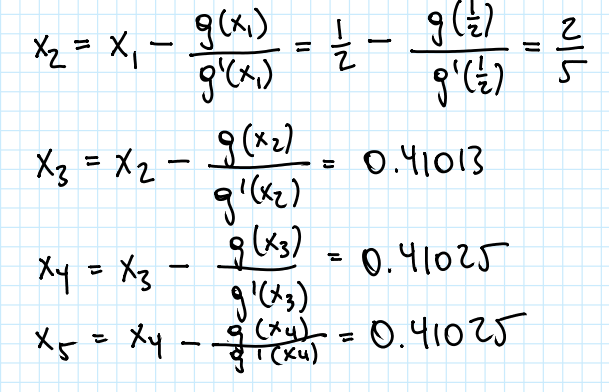 x₂ = x₁ - g(x₁)/g'(x₁) = 1/2 - g(1/2)/g'(1/2) = 2/5
x₃ = x₂ - g(x₂)/g'(x₂) = 0.41013
x₄ = x₃ - g(x₃)/g'(x₃) = 0.41025
x₅ = x₄ - g(x₄)/g'(x₄) = 0.41025